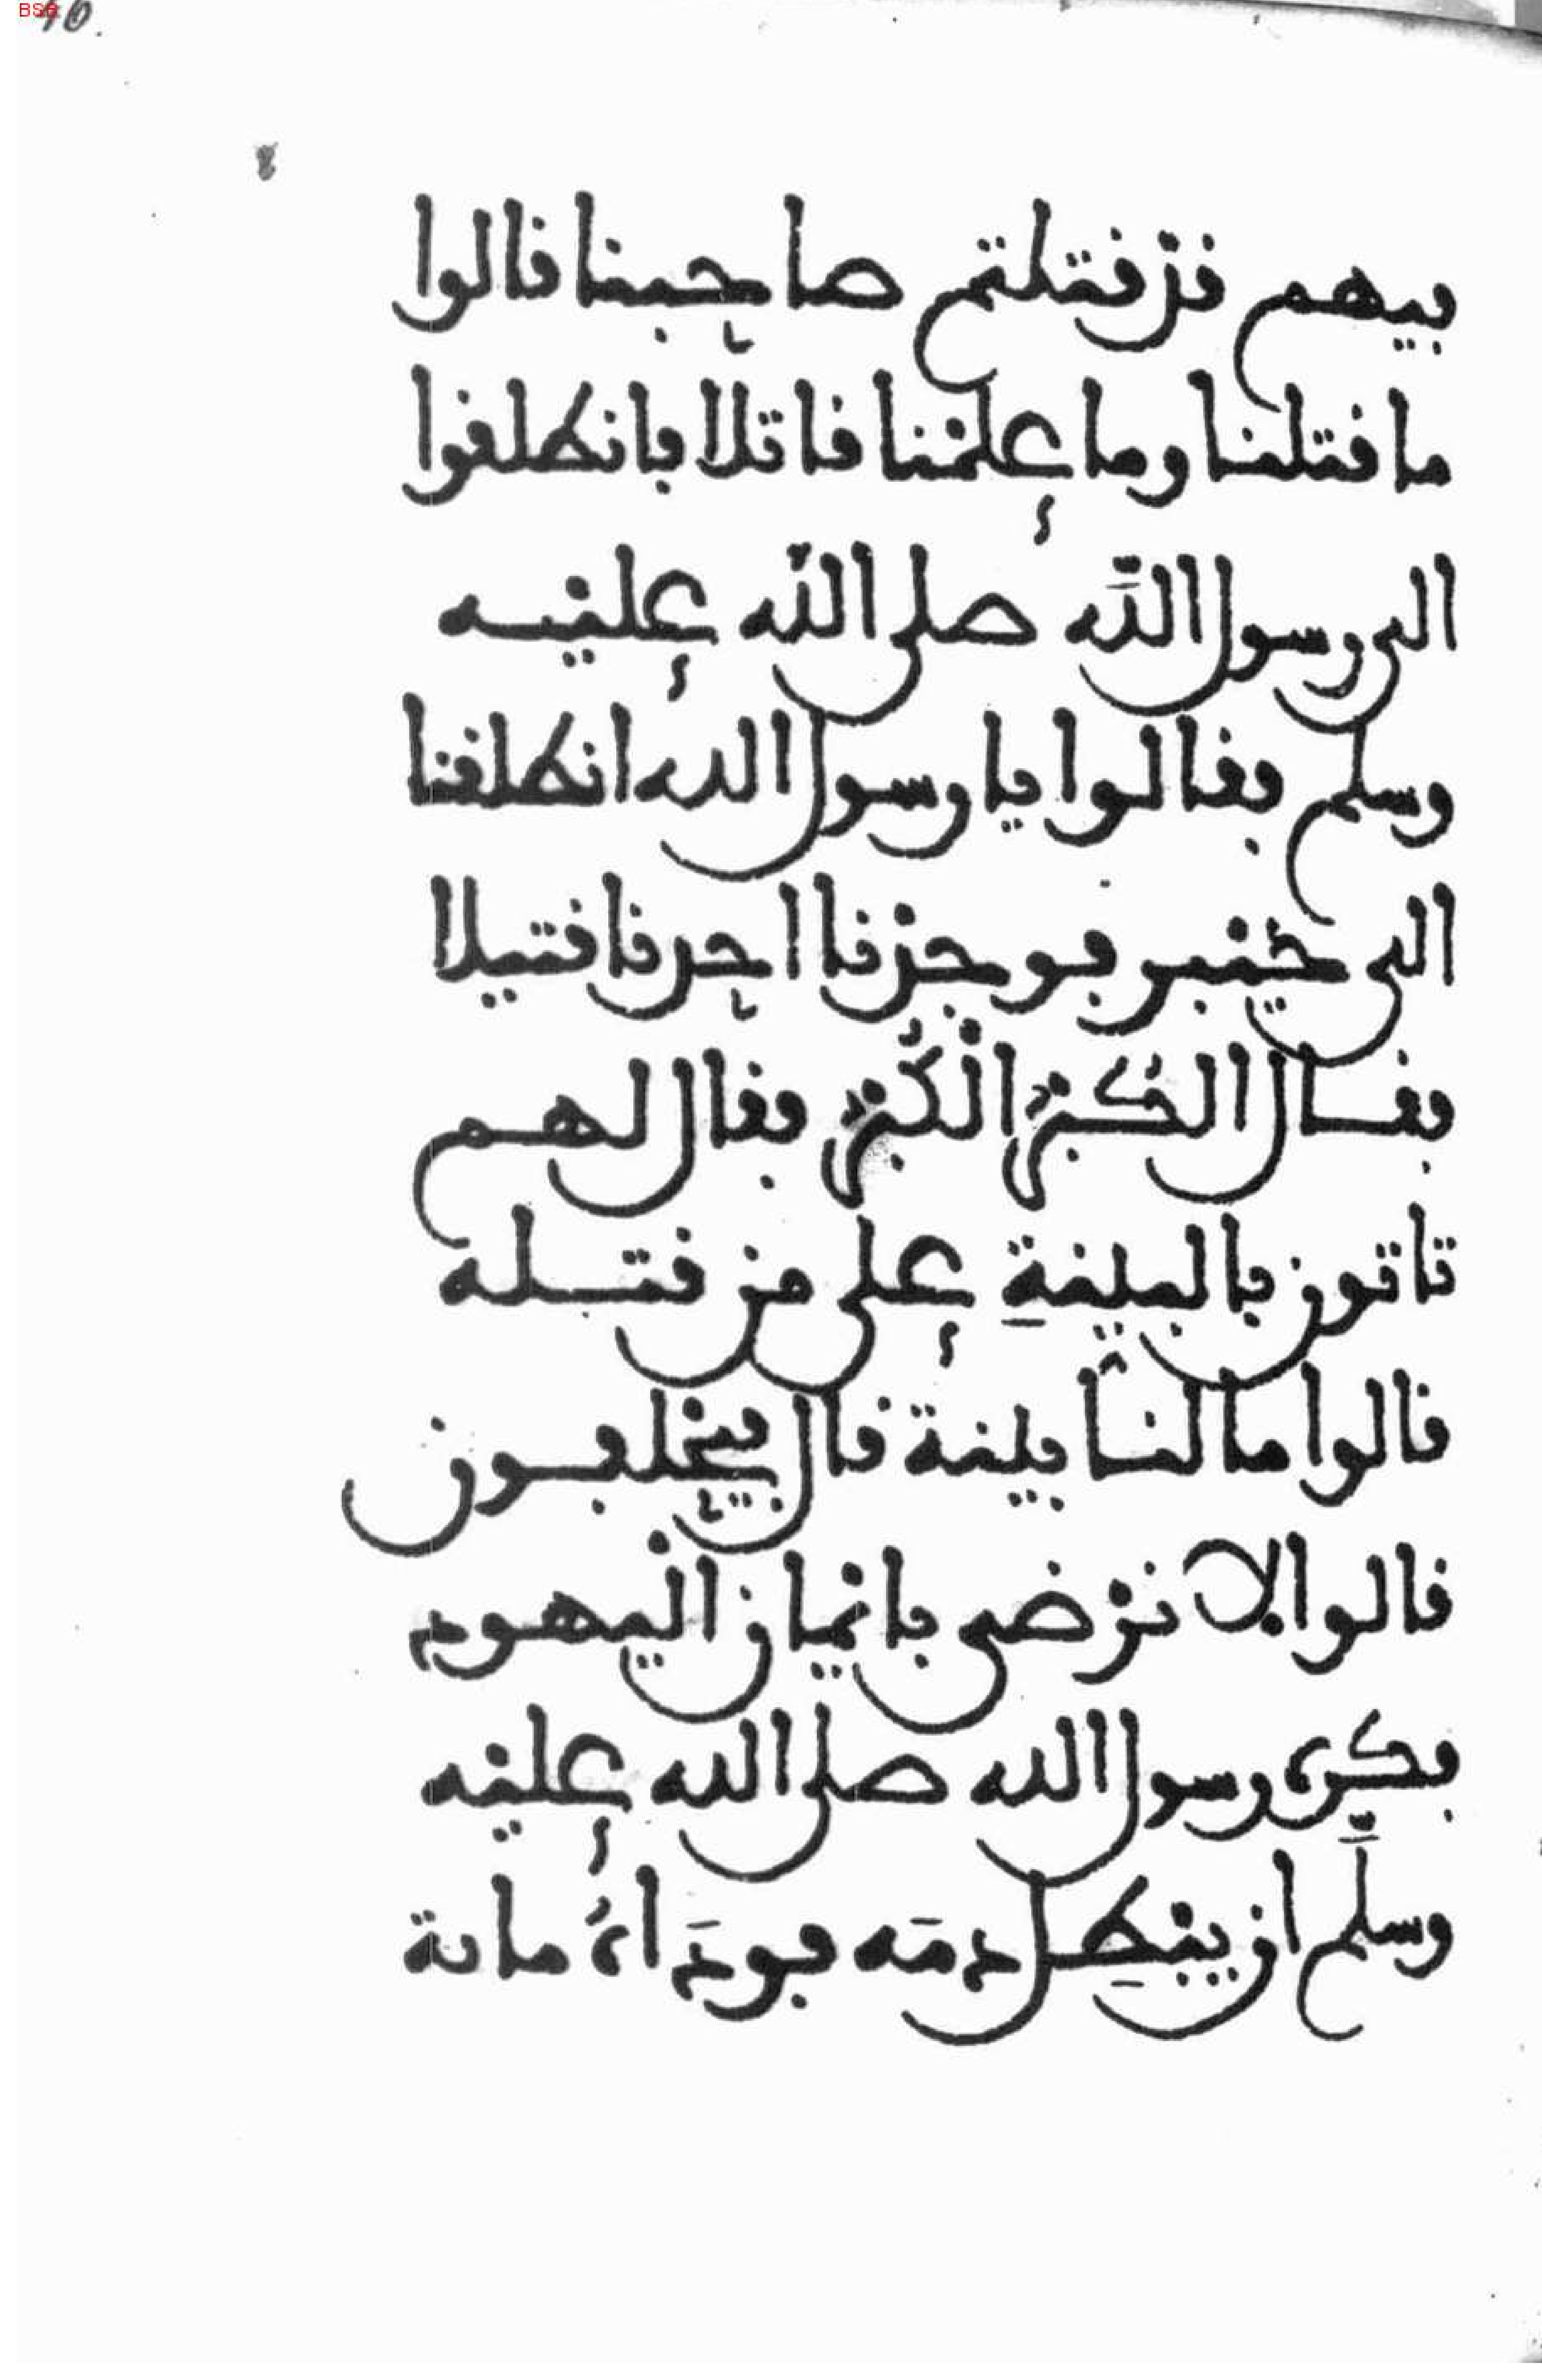 فيهم قد قتلتم صاحبنا قالوا
ما قتلنا وما علمنا قاتلا فانطلقوا
الى رسول الله صلى الله عليه
وسلم فقالوا يا رسول الله انطلقنا
الى خيبر فوجدنا احدنا قتيلا
فقال الكبر الكبر فقال لهم
تاتون بالبينة على من قتله
قالوا ما لنا بينة قال فيحلفون
قالوا لا نرضى بايمان اليهود
فكره رسول الله صلى الله عليه
وسلم ان يبطل دمه فوداه مائة